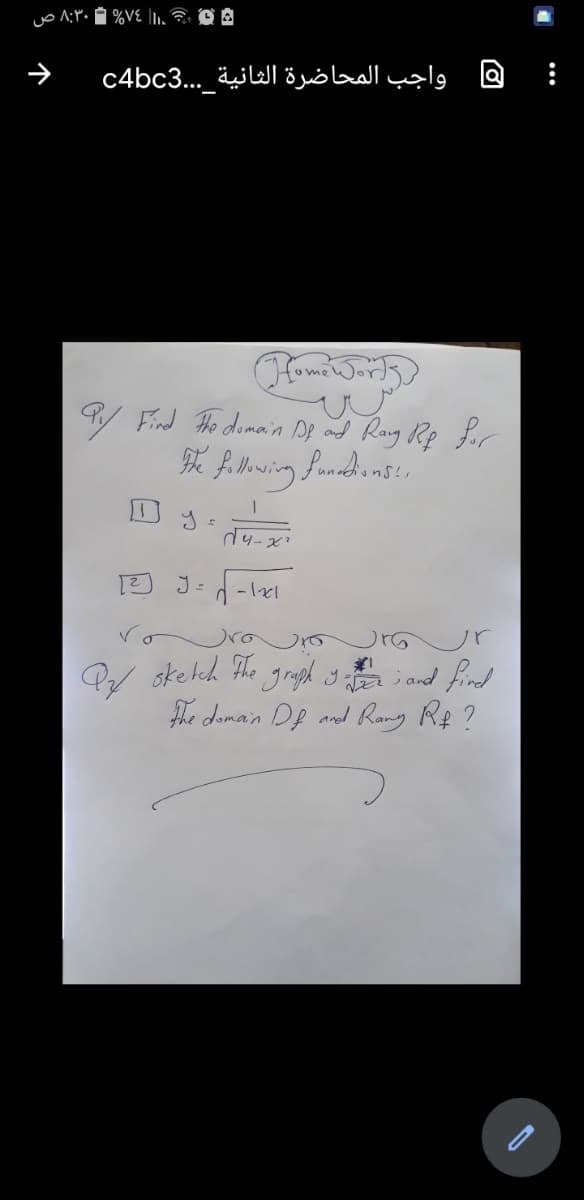 ٨:٣٠ ص %٧٤
واجب المحاضرة الثانية_...c4bc3
HomeWork
Q1/ Find the domain Df and Rang Rf for
the following functions:,
[1] y = 1/√4-x²
[2] y = √-|x|
Q2/ sketch the graph y = 1/√x² ; and find
the domain Df and Rang Rf ?